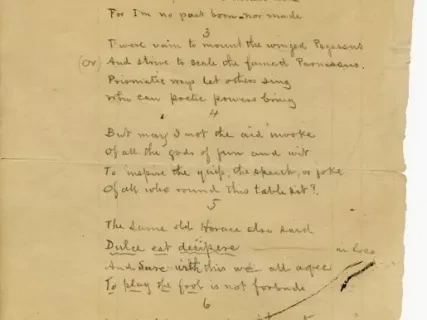 For I'm no poet born nor made
3
T'were vain to mount the winged Pegasus
(Or) And strive to scale the famed Parnassus.
Prismatic ways let others sing
Who can poetic powers bring
4
But may I not the aid invoke
Of all the gods of fun and wit
To inspire the quip, the speech, or joke
Of all who round this table sit?
5
The same old Horace also said
Dulce est decipere in loco
And sure with this we all agree
To play the fool is not forbade
6